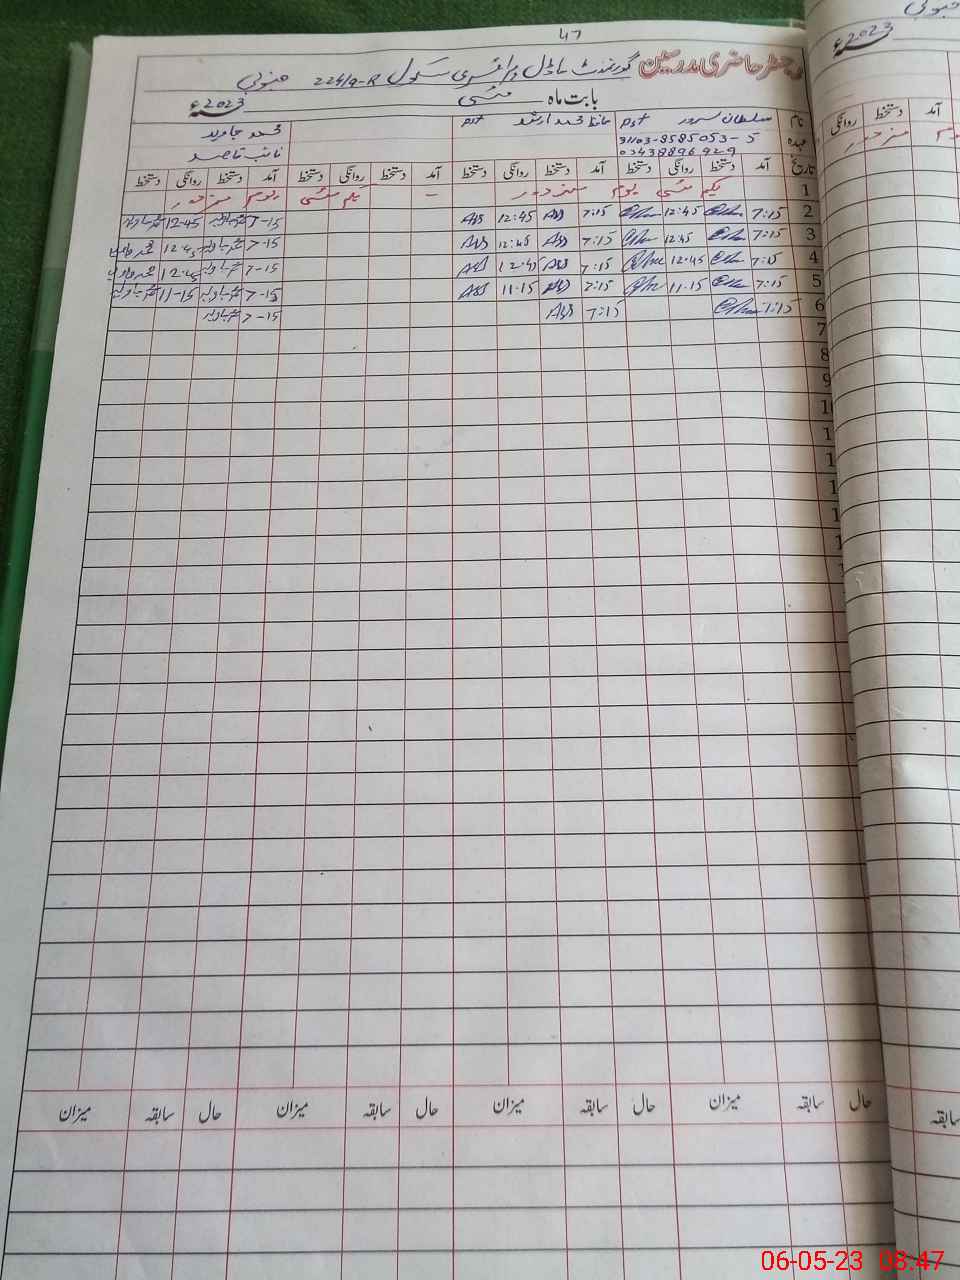 47
رجسٹر حاضری مدرسین گورنمنٹ ماڈل پرائمری سکول 224/9-R جنوبی
بابت ماہ مئی 2023ء
نام سلطان سرور Pst حافظ محمد ارشد Pst محمد جاوید
عہدہ 31103-8585053-5 نائب قاصد
03438896929
تاریخ آمد دستخط روانگی دستخط آمد دستخط روانگی دستخط آمد دستخط روانگی دستخط آمد دستخط روانگی دستخط
1 یکم مئی یوم مزدور - یکم مئی یوم مزدور
2 7:15 12:45 7:15 12:45 7-15 12-45
3 7:15 12:45 7:15 12:45 7-15 12-45
4 7:15 12:45 7:15 12:45 7-15 12-45
5 7:15 11:15 7:15 11:15 7-15 11-15
6 7:15 7:15 7-15
7
8
9
حال سابقہ میزان حال سابقہ میزان حال سابقہ میزان حال سابقہ میزان
2023ء
آمد دستخط روانگی
سابقہ
06-05-23 08:47